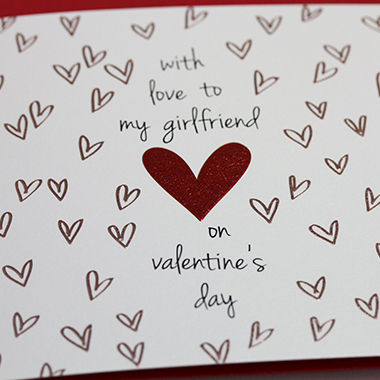 with
love to
my girlfriend
on
valentine's
day